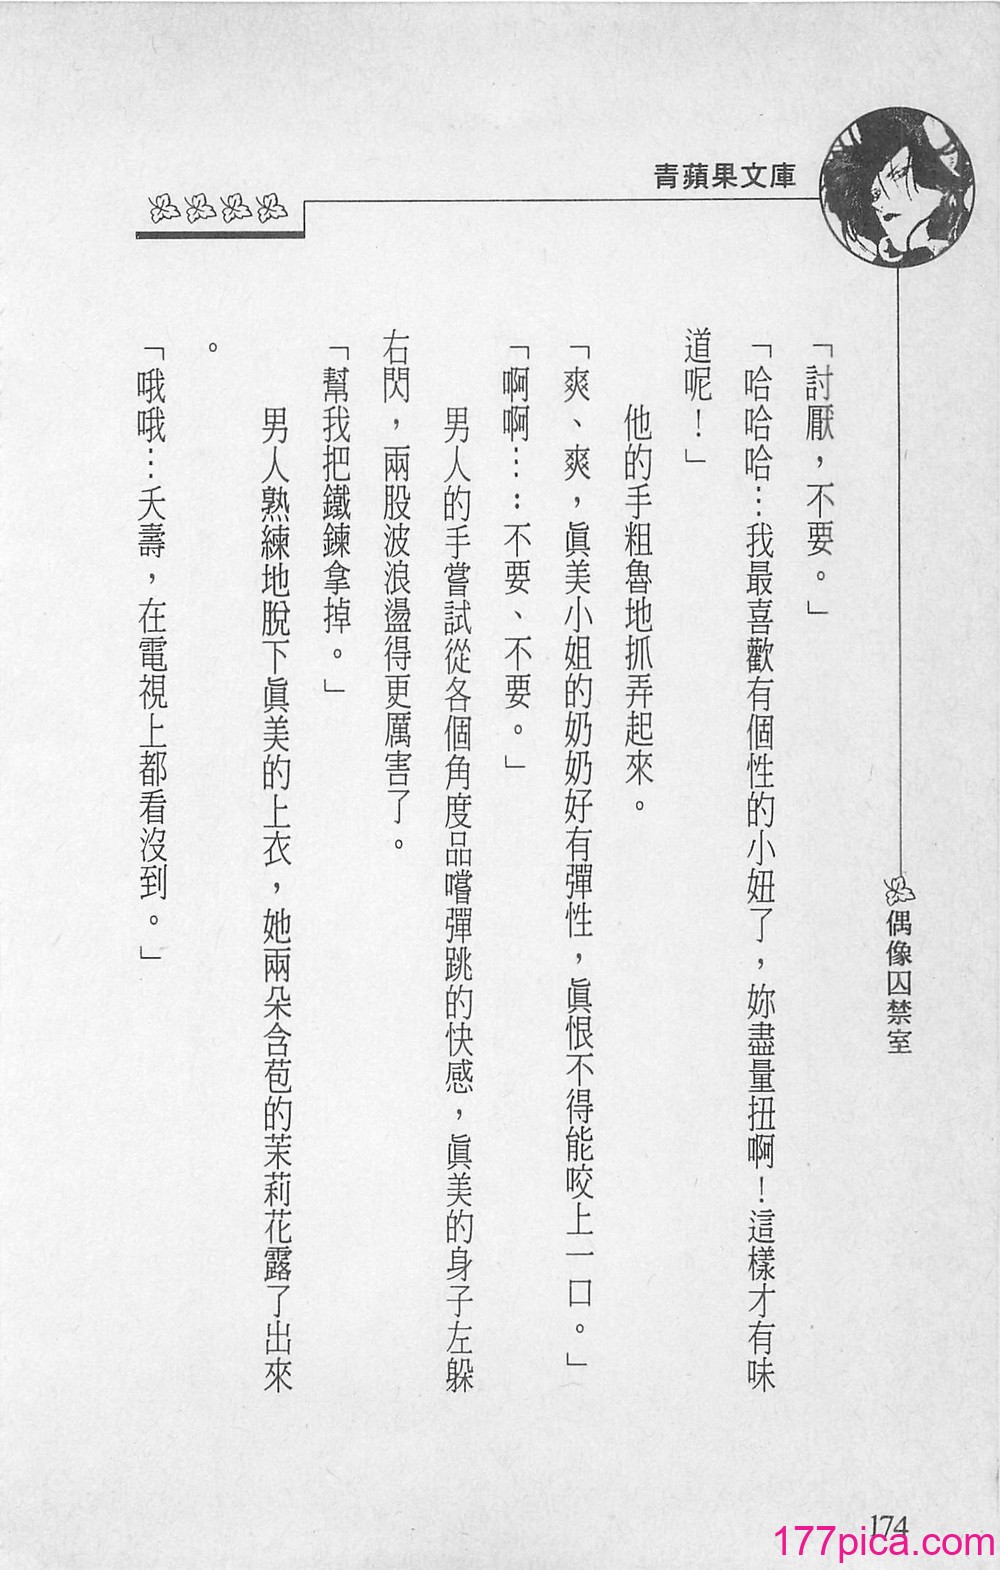 青蘋果文庫
偶像囚禁室
「討厭，不要。」
「哈哈哈…我最喜歡有個性的小妞了，妳盡量扭啊！這樣才有味
道呢！」
他的手粗魯地抓弄起來。
「爽、爽，眞美小姐的奶奶好有彈性，眞恨不得能咬上一口。」
「啊啊…：不要、不要。」
男人的手嘗試從各個角度品嚐彈跳的快感，眞美的身子左躲
右閃，兩股波浪盪得更厲害了。
「幫我把鐵鍊拿掉。」
男人熟練地脫下眞美的上衣，她兩朵含苞的茉莉花露了出來
。
「哦哦…夭壽，在電視上都看沒到。」
174
177pica.com